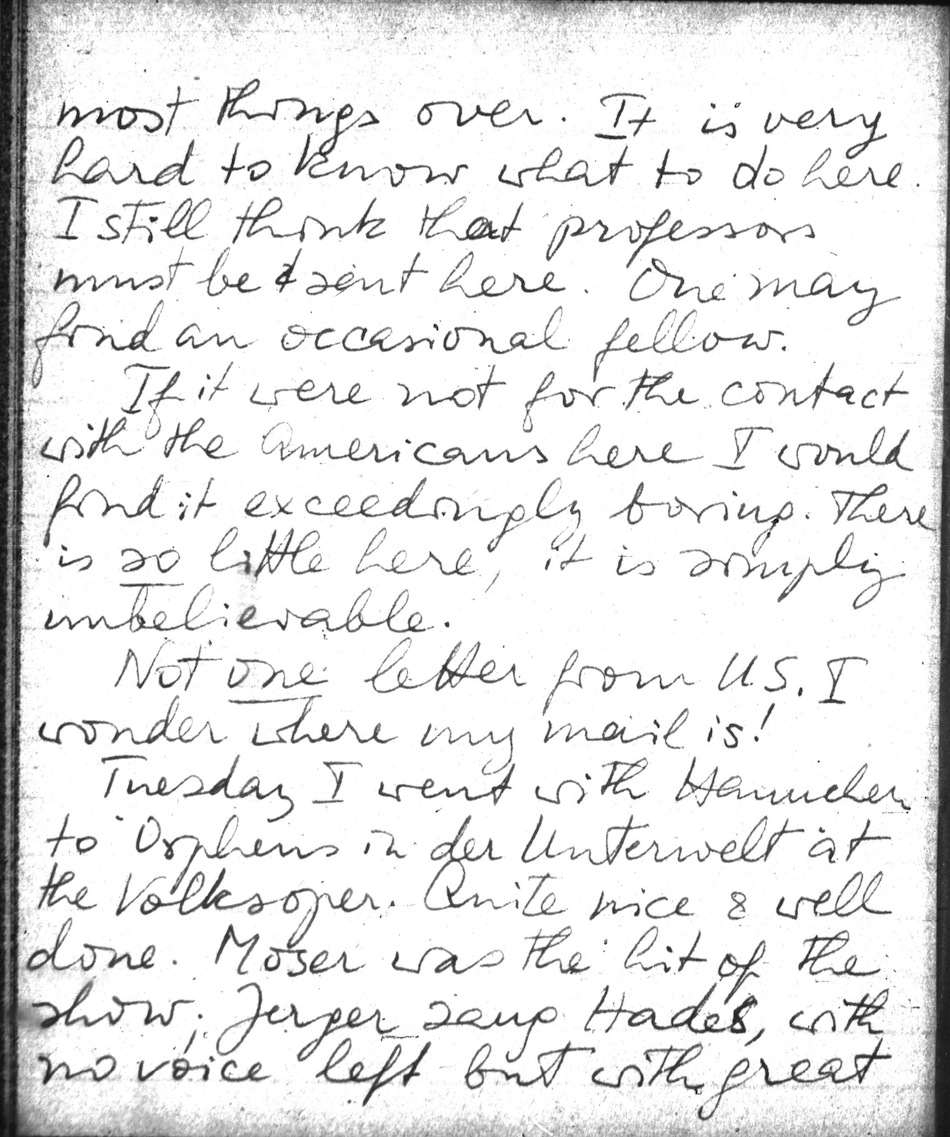 most things over. It is very
hard to know what to do here.
I still think that professors
must be sent here. One may
find an occasional fellow.
If it were not for the contact
with the Americans here I would
find it exceedingly boring. There
is so little here, it is simply
unbelievable.
Not one letter from U.S. I
wonder where my mail is!
Tuesday I went with Hannchen
to Orpheus in der Unterwelt at
the Volksoper. Quite nice & well
done. Moser was the hit of the
show; Jerger sang Hades, with
no voice left but with great